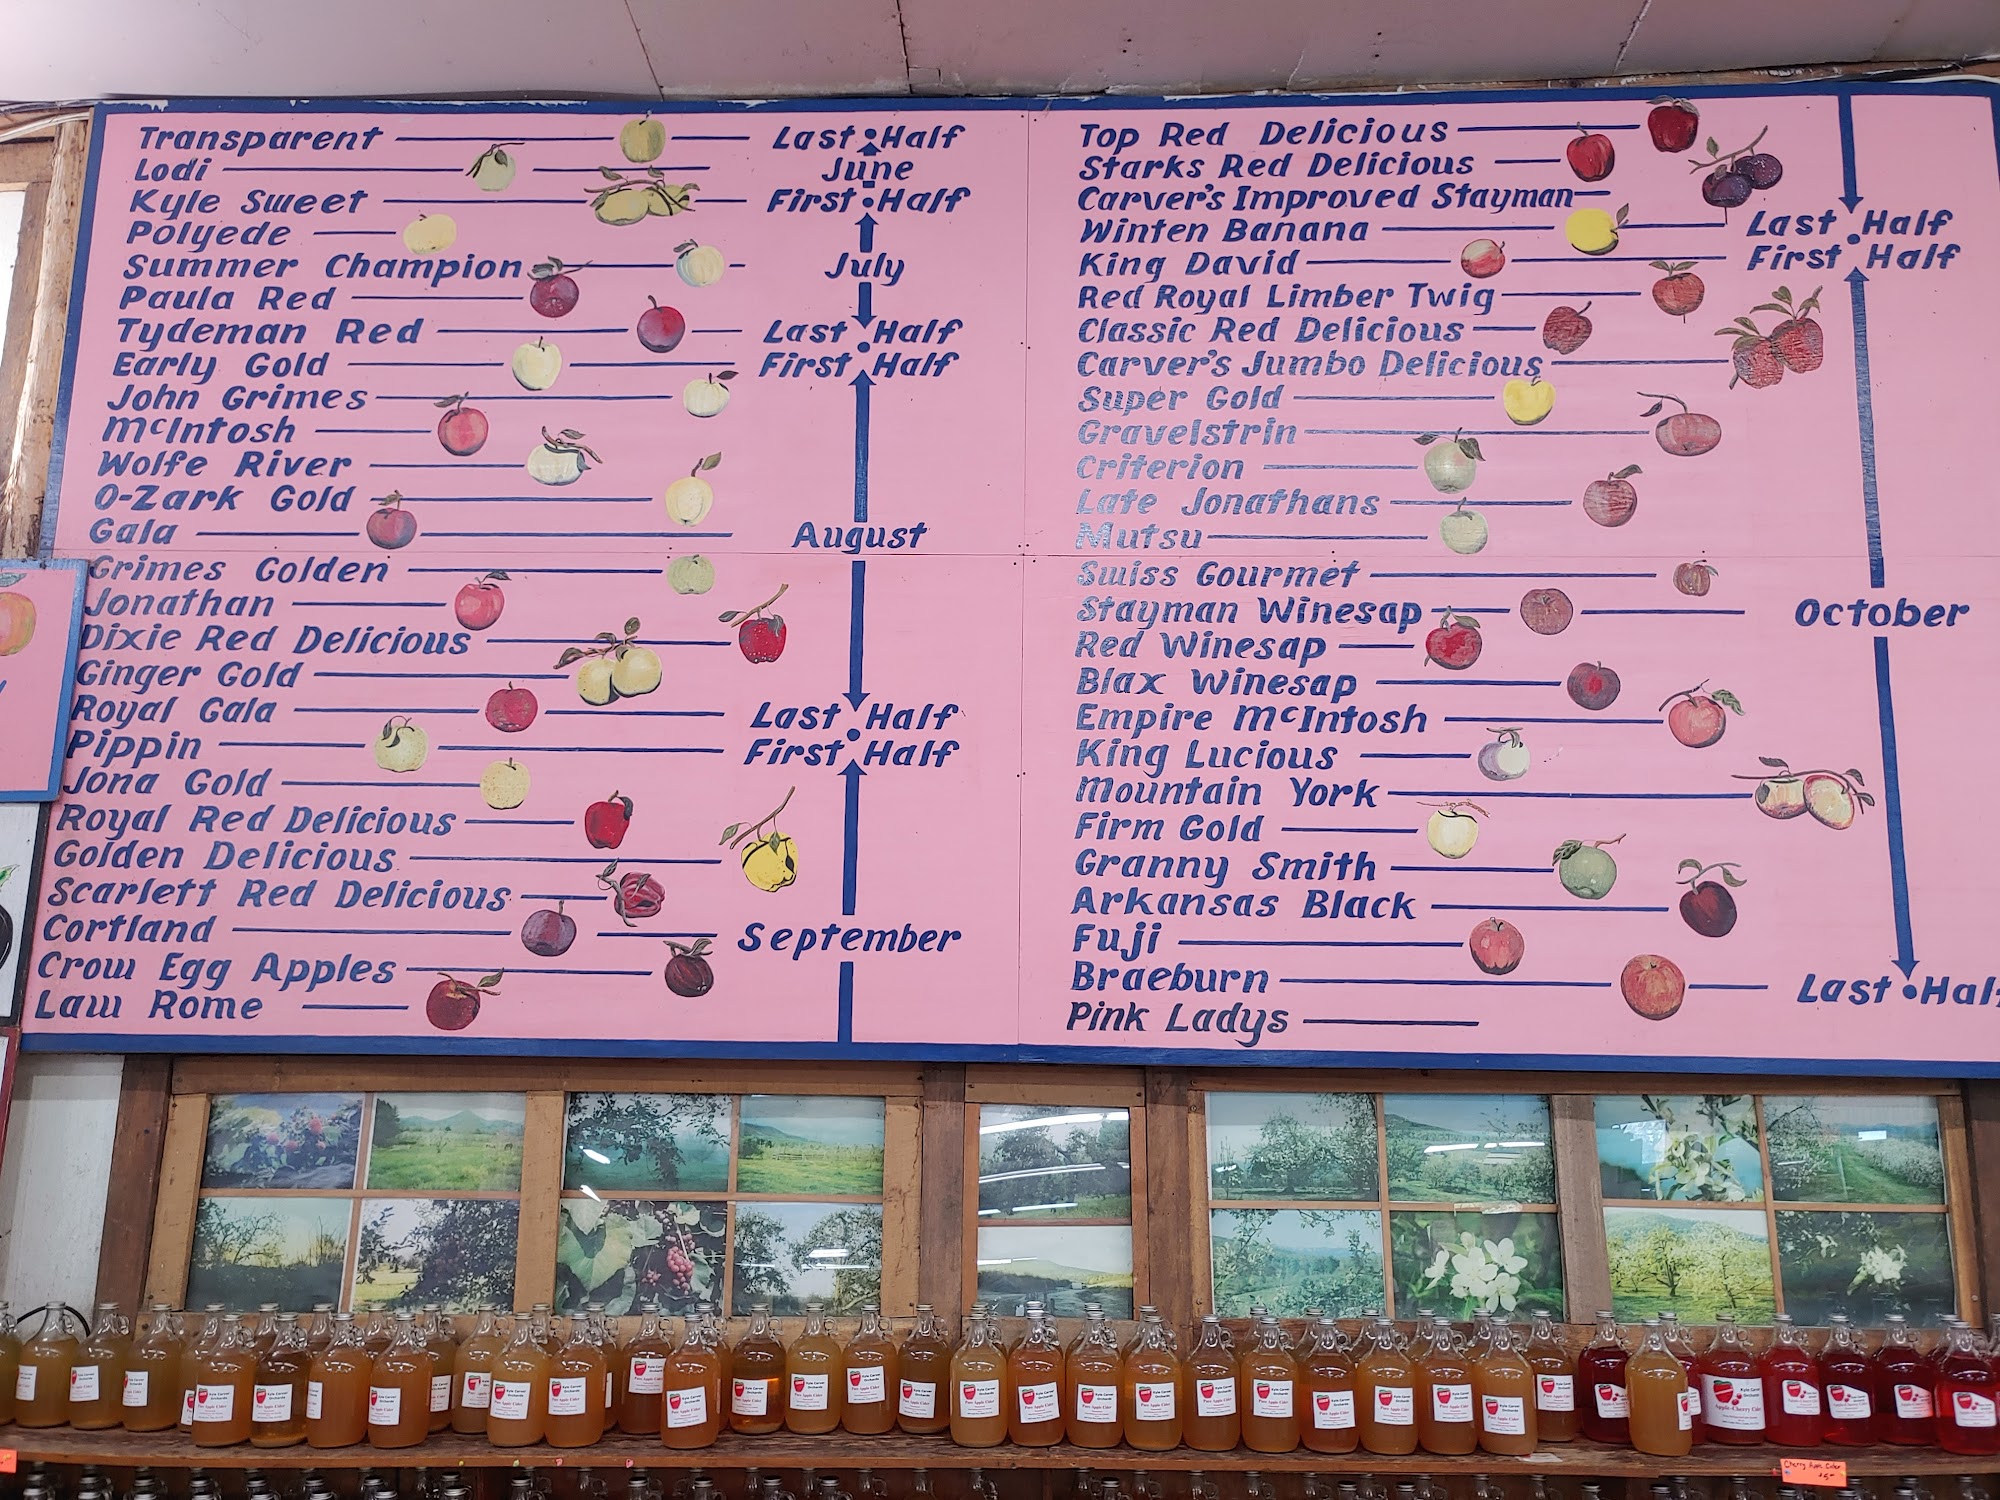 Transparent
Lodi
Kyle Sweet
Polyede
Summer Champion
Paula Red
Tydeman Red
Early Gold
John Grimes
McIntosh
Wolfe River
O-Zark Gold
Gala
Grimes Golden
Jonathan
Dixie Red Delicious
Ginger Gold
Royal Gala
Pippin
Jona Gold
Royal Red Delicious
Golden Delicious
Scarlett Red Delicious
Cortland
Crow Egg Apples
Law Rome
Last Half
June
First Half
July
Last Half
First Half
August
Last Half
First Half
September
Top Red Delicious
Starks Red Delicious
Carver's Improved Stayman
Winten Banana
King David
Red Royal Limber Twig
Classic Red Delicious
Carver's Jumbo Delicious
Super Gold
Gravelstrin
Criterion
Late Jonathans
Mutsu
Swiss Gourmet
Stayman Winesap
Red Winesap
Blax Winesap
Empire McIntosh
King Lucious
Mountain York
Firm Gold
Granny Smith
Arkansas Black
Fuji
Braeburn
Pink Ladys
Last Half
First Half
October
Last Half
Kyle Carver
Orchards
Pure Apple Cider
Kyle Carver
Orchards
Apple-Cherry Cider
Cherry Apple Cider